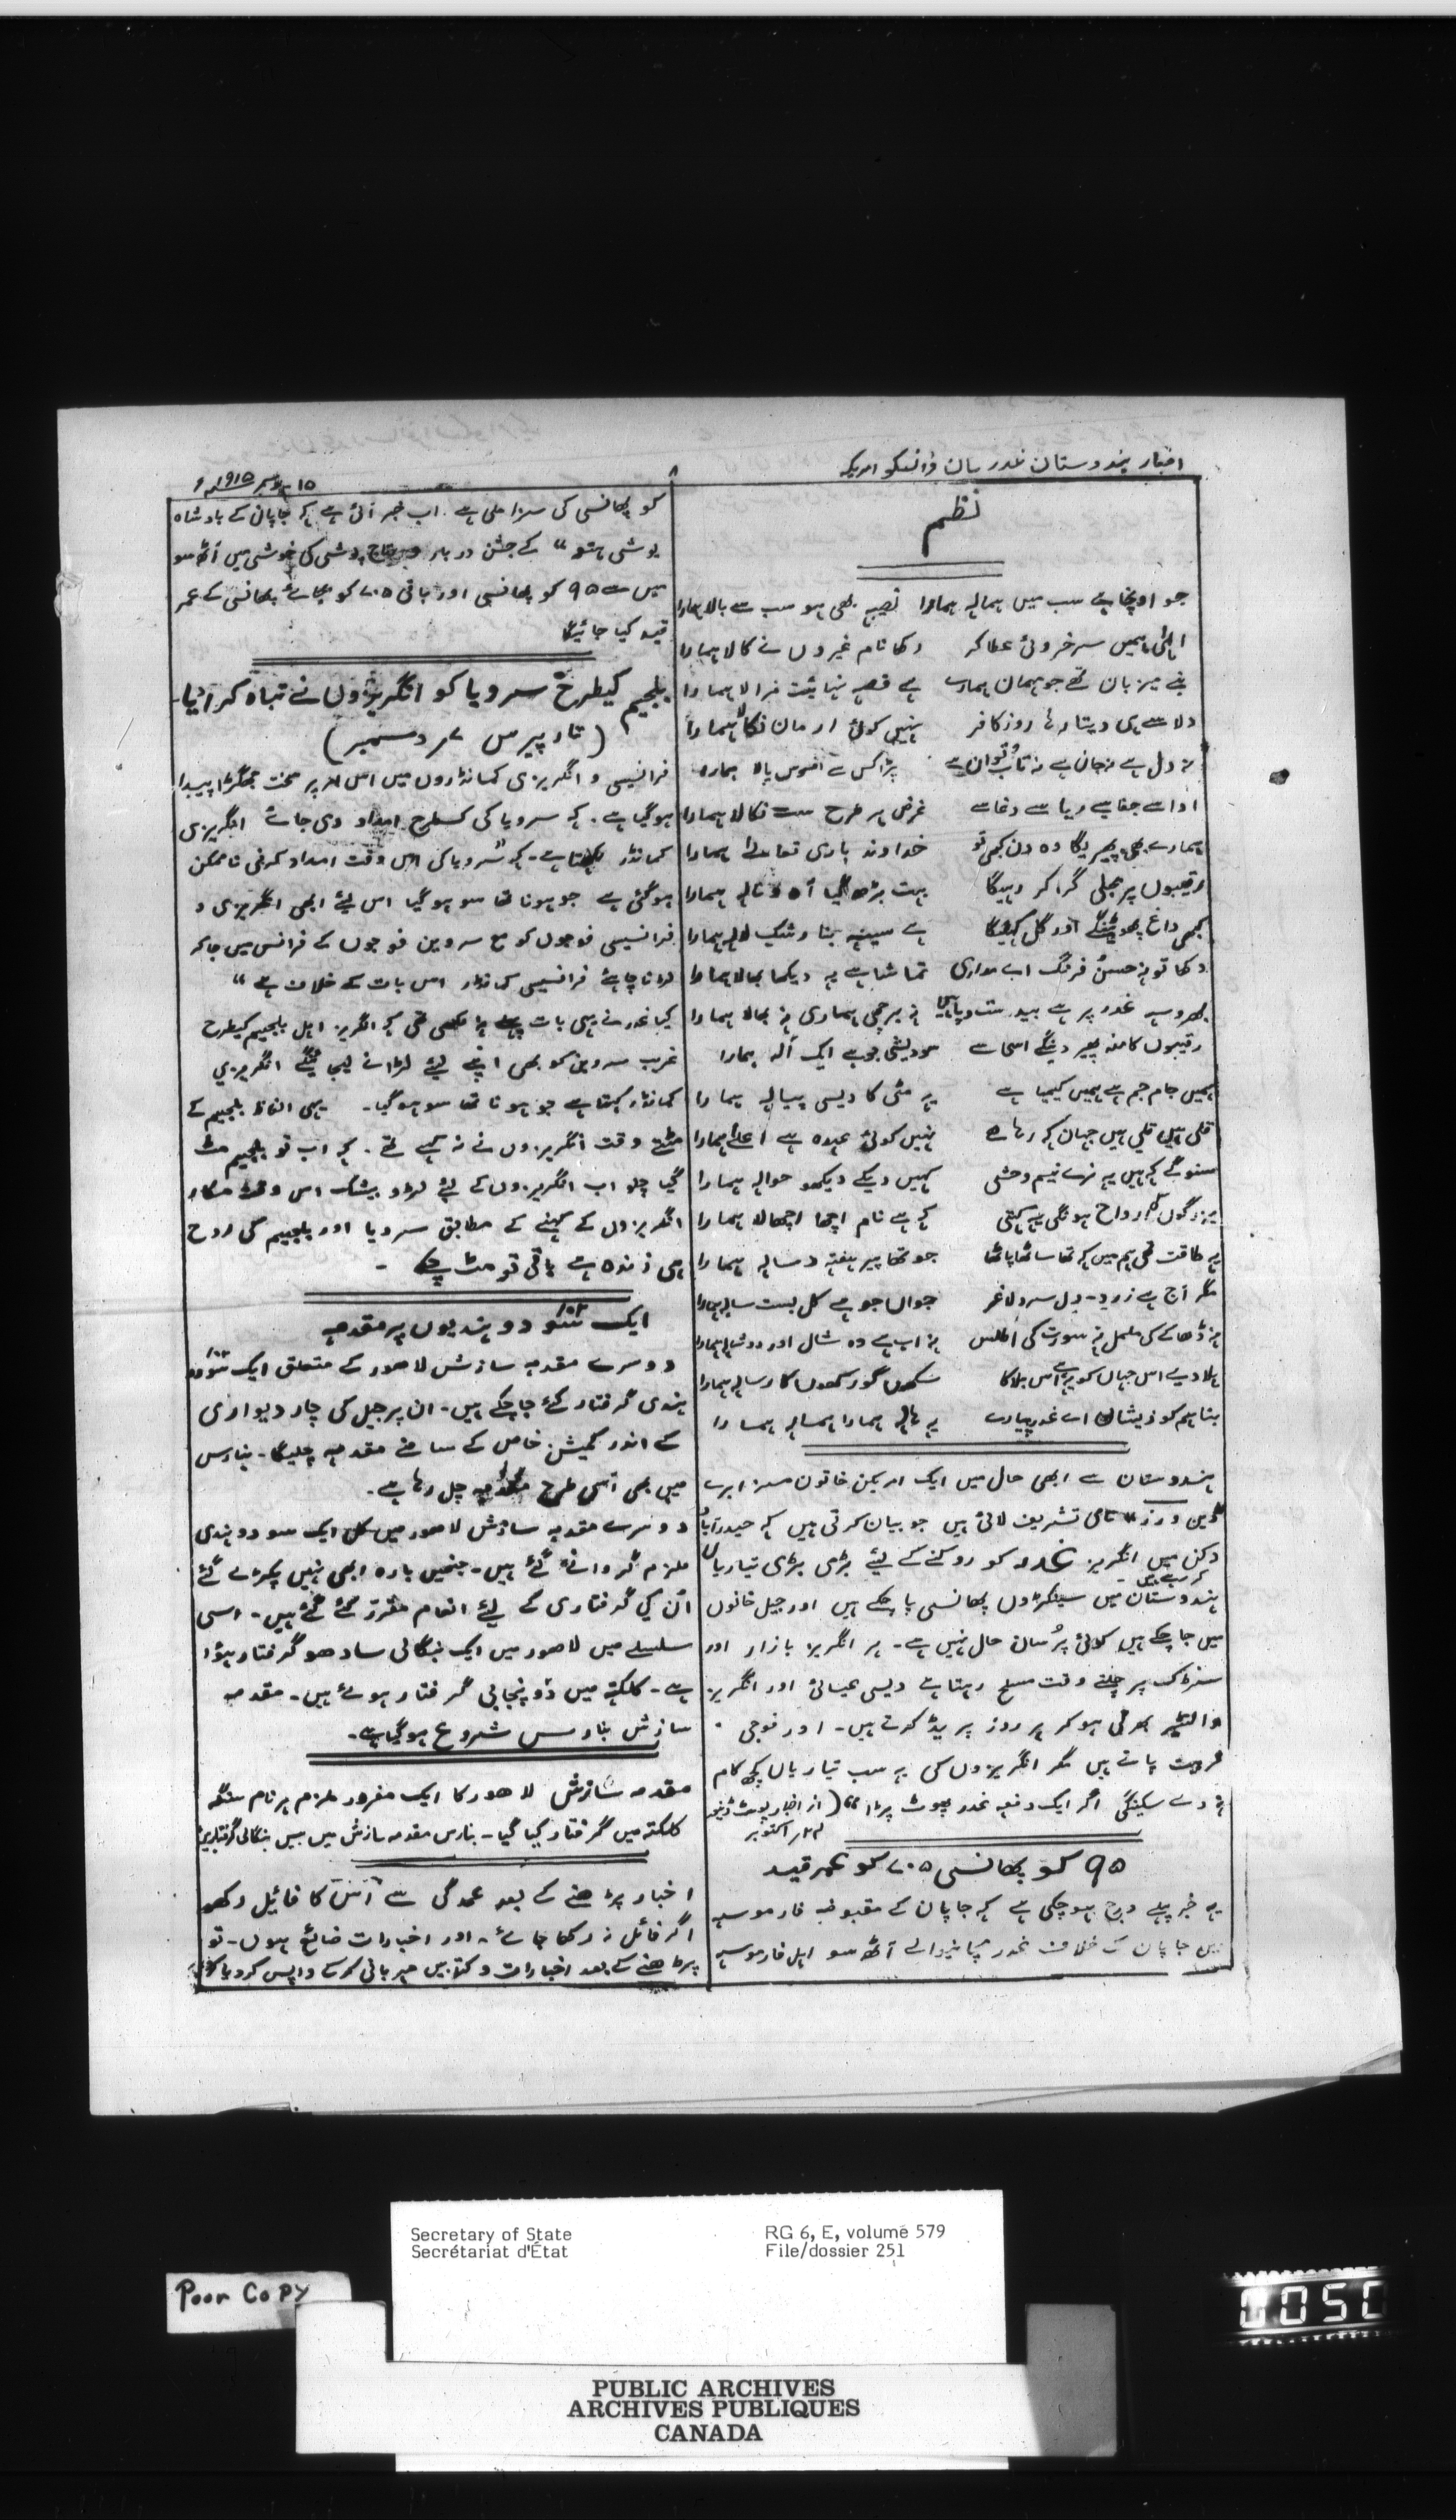 اخبار ہندوستان غدر سان فرانسسکو امریکہ
۸
۱۵ دسمبر ۱۹۱۵ء
نظم
جو اونچا ہے سب میں ہمالہ ہمارا نصیبہ بھی ہو سب سے بالا ہمارا
الٰہی ہمیں سرخروئی عطا کر رکھا نام غیروں نے کالا ہمارا
بنے میزبان تھے جو مہمان ہمارے ہے قصہ نہایت نرالا ہمارا
دلاسے ہی دیتا رہا روز کافر نہیں کوئی ارمان نکالا ہمارا
نہ دل ہے نہ جان ہے نہ تاب و تواں ہے پڑا کس سے افسوس پالا ہمارا
ادا سے جفا سے ریا سے دغا سے غرض ہر طرح سے نکالا ہمارا
ہمارے بھی پھیریگا وہ دن کبھی تو خداوند باری تعالیٰ ہمارا
رقیبوں پر بجلی گرا کر رہیگا بہت بڑھ گیا آہ و نالہ ہمارا
کبھی داغ پھوٹینگے اور گل کھلیگا ہے سینہ بنا رشک لالہ ہمارا
دکھا تو نہ حسن فرنگ اے مداری تماشا ہے یہ دیکھا بھالا ہمارا
بھروسہ غدر پر ہے بید ست و پا ہیں نہ برچھی ہماری نہ بھالا ہمارا
رقیبوں کا منہ پھیر دینگے اسی سے سودیشی جو ہے ایک آلہ ہمارا
ہمیں جام جم ہے ہمیں کیمیا ہے یہ مٹی کا دیسی پیالہ ہمارا
قلی ہیں قلی ہیں جہان کہہ رہا ہے نہیں کوئی عہدہ ہے اعلےٰ ہمارا
سنوگے کہ ہیں یہ نرے نیم وحشی کہیں دیکے دیکھو حوالہ ہمارا
بزرگوں کی ارواح ہونگی یہ کہتی کہ ہے نام اچھا اچھالا ہمارا
یہ طاقت تھی ہم میں کہ تھا ساٹھا پاٹھا جو تھا پیر ہفتہ دسالہ ہمارا
مگر آج ہے زرد۔ دل سرد لاغر جواں جو ہے کل بست سالہ ہمارا
نہ ڈھاکے کی ململ نہ سورت کی اطلس نہ اب ہے وہ شال اور دوشالہ ہمارا
ہلا دیے اس جہاں کو ہے اس بلا کا سکھوں گورکھوں کا رسالہ ہمارا
بنا ہم کو ذیشان اے غدر پیارے یہ ہالہ ہمارا ہمالہ ہمارا
ہندوستان سے ابھی حال میں ایک امریکن خاتون مسز ایرے
گرین ورز" نامی تشریف لائی ہیں جو بیان کرتی ہیں کہ حیدرآباد
دکن میں انگریز غدر کو روکنے کے لئے بڑی بڑی تیاریاں
کر رہے ہیں۔
ہندوستان میں سینکڑوں پھانسی پا چکے ہیں اور جیل خانوں
میں جا چکے ہیں کوئی پُرسان حال نہیں ہے۔ ہر انگریز بازار اور
سڑک پر چلتے وقت مسلح رہتا ہے دیسی عیسائی اور انگریز
والنٹیر بھرتی ہو کر ہر روز پریڈ کرتے ہیں۔ اور فوجی
تربیت پاتے ہیں مگر انگریزوں کی یہ سب تیاریاں کچھ کام
نہ دے سکینگی اگر ایک دفعہ غدر پھوٹ پڑا" (از اخبار پوسٹ ڈینور
اکتوبر
۹۵ کو پھانسی ۷۰۵ کو عمر قید
یہ خبر پہلے درج ہو چکی ہے کہ جاپان کے مقبوضہ فارموسہ
میں جاپان کے خلاف غدر مچانیوالے آٹھ سو اہل فارموسہ
کو پھانسی کی سزا ملی ہے۔ اب خبر آئی ہے کہ جاپان کے بادشاہ
یوشی ہتو" کے جشن دربار و تاج پوشی کی خوشی میں آٹھ سو
میں سے ۹۵ کو پھانسی اور باقی ۷۰۵ کو بجائے پھانسی کے عمر
قید کیا جائیگا
بلجیم کیطرح سرویا کو انگریزوں نے تباہ کرا دیا۔
(تار پیرس ۷ دسمبر)
فرانسیسی و انگریزی کمانڈاروں میں اس امر پر سخت جھگڑا پیدا
ہو گیا ہے۔ کہ سرویا کی کسطرح امداد دی جائے انگریزی
کمانڈر کہتا ہے۔ کہ "سرویا کی اس وقت امداد کرنی ناممکن
ہو گئی ہے جو ہونا تھا سو ہو گیا اس لئے ابھی انگریزی و
فرانسیسی فوجوں کو مع سروین فوجوں کے فرانس میں جا کر
لڑنا چاہئے فرانسیسی کمانڈار اس بات کے خلاف ہے"
کیا غدر نے یہی بات پہلے نہ لکھی تھی کہ انگریز اہل بلجیم کیطرح
غریب سروین کو بھی اپنے لئے لڑانے لیجائینگے انگریزی
کمانڈار کہتا ہے جو ہونا تھا سو ہو گیا۔ یہی الفاظ بلجیم کے
مٹتے وقت انگریزوں نے نہ کہے تھے۔ کہ اب تو بلجیم مٹ
گیا چلو اب انگریزوں کے لئے لڑو بیشک اس وقت مکار
انگریزوں کے کہنے کے مطابق سرویا اور بلجیم کی روح
ہی زندہ ہے باقی تو مٹ چکے۔
ایک سو دو ہندیوں پر مقدمہ
۱۰۲
دوسرے مقدمہ سازش لاہور کے متعلق ایک سو دو
ہندی گرفتار کئے جا چکے ہیں۔ ان پر جیل کی چار دیواری
کے اندر کمیشن خاص کے سامنے مقدمہ چلیگا۔ بنارس
میں بھی اسی طرح مقدمہ چل رہا ہے۔
دوسرے مقدمہ سازش لاہور میں کل ایک سو دو ہندی
ملزم گردانے گئے ہیں۔ جنمیں بارہ ابھی نہیں پکڑے گئے
ان کی گرفتاری کے لئے انعام مقرر کئے گئے ہیں۔ اسی
سلسلے میں لاہور میں ایک بنگالی سادھو گرفتار ہوا
ہے۔ کلکتہ میں دو پنجابی گرفتار ہوئے ہیں۔ مقدمہ
سازش بنارس شروع ہو گیا ہے۔
مقدمہ سازش لاہور کا ایک مفرور ملزم ہرنام سنگھ
کلکتہ میں گرفتار کیا گیا۔ بنارس مقدمہ سازش میں بیس بنگالی گرفتار ہیں
اخبار پڑھنے کے بعد عمدگی سے اس کا فائیل رکھو
اگر فائل نہ رکھا جائے۔ اور اخبارات ضائع ہوں۔ تو
پڑھنے کے بعد اخبارات و کتابیں مہربانی کر کے واپس کر دیا کرو
Secretary of State
Secrétariat d'État
RG 6, E, volume 579
File/dossier 251
Poor Copy
0050
PUBLIC ARCHIVES
ARCHIVES PUBLIQUES
CANADA